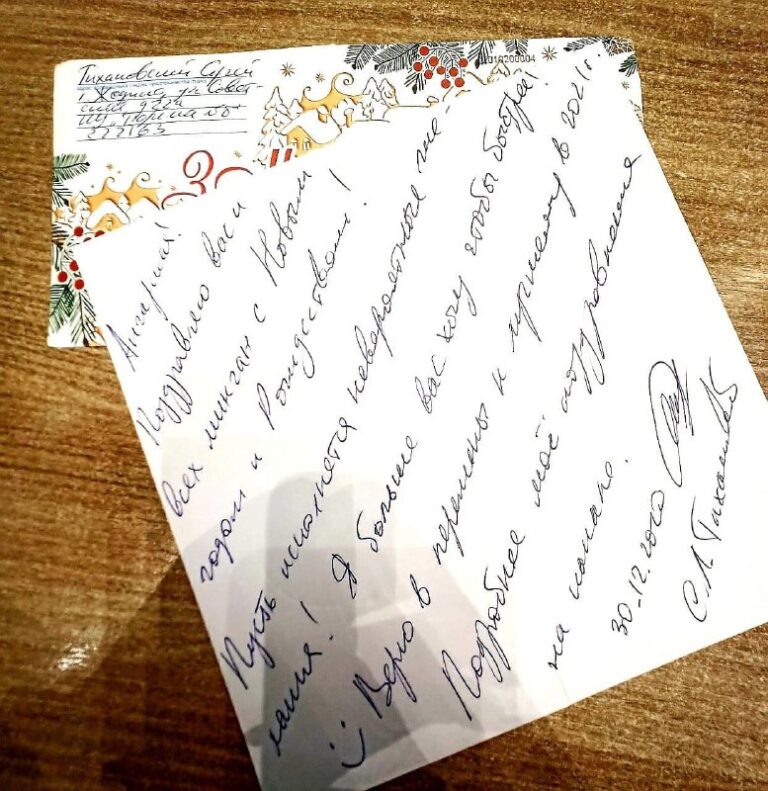 Тихановский Сергей
г. Жодино, ул. Совет
ская д. 22А
222163
010200004
Поздравляю вас и
всех минчан с Новым
годом и Рождеством!
Пусть исполнятся невероятные же-
лания! Я больше вас хочу чтобы быстрее!
Верю в перемены к лучшему в 2021г.
Подробнее моё поздравление
на канале.
30.12.2020
С.Л. Тихановский